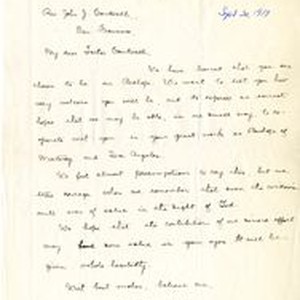 Rev. John J. Cantwell Sept 21, 1917
San Francisco
My dear Father Cantwell,
We have learned that you are
chosen to be our Bishop. We want to tell you how
very welcome you will be, and to express an earnest
hope that we may be able, in our small way, to co-
operate with you in your great work as Bishop of
Monterey and Los Angeles.
We feel almost presumptuous to say this, but we
take courage when we remember that even the widow's
mite was of value in the sight of God.
We hope that the contribution of our sincere effort
may have some value in your eyes. It will be
given whole heartedly.
With best wishes, believe me,